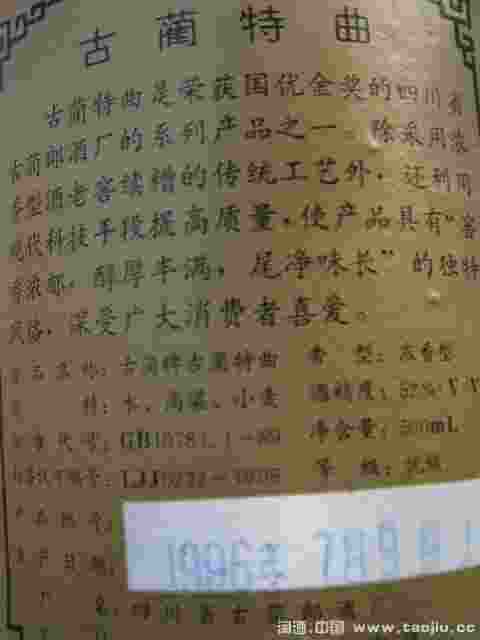 古蔺特曲
古蔺特曲是荣获国优金奖的四川省
古蔺郎酒厂的系列产品之一。除采用浓
香型酒老窖续糟的传统工艺外，还利用
现代科技手段提高质量，使产品具有“窖
香浓郁，醇厚丰满，尾净味长”的独特
风格，深受广大消费者喜爱。
名称：古蔺牌古蔺特曲
香 型：浓香型
料：水、高粱、小麦
酒精度：52% V/V
标准代号：GB10781.1-89
净含量：500mL
等 级：优级
产品批号：
生产日期：
1996年 7月9日
四川省古蔺郎酒厂
淘酒·中国 www.taojiu.cc